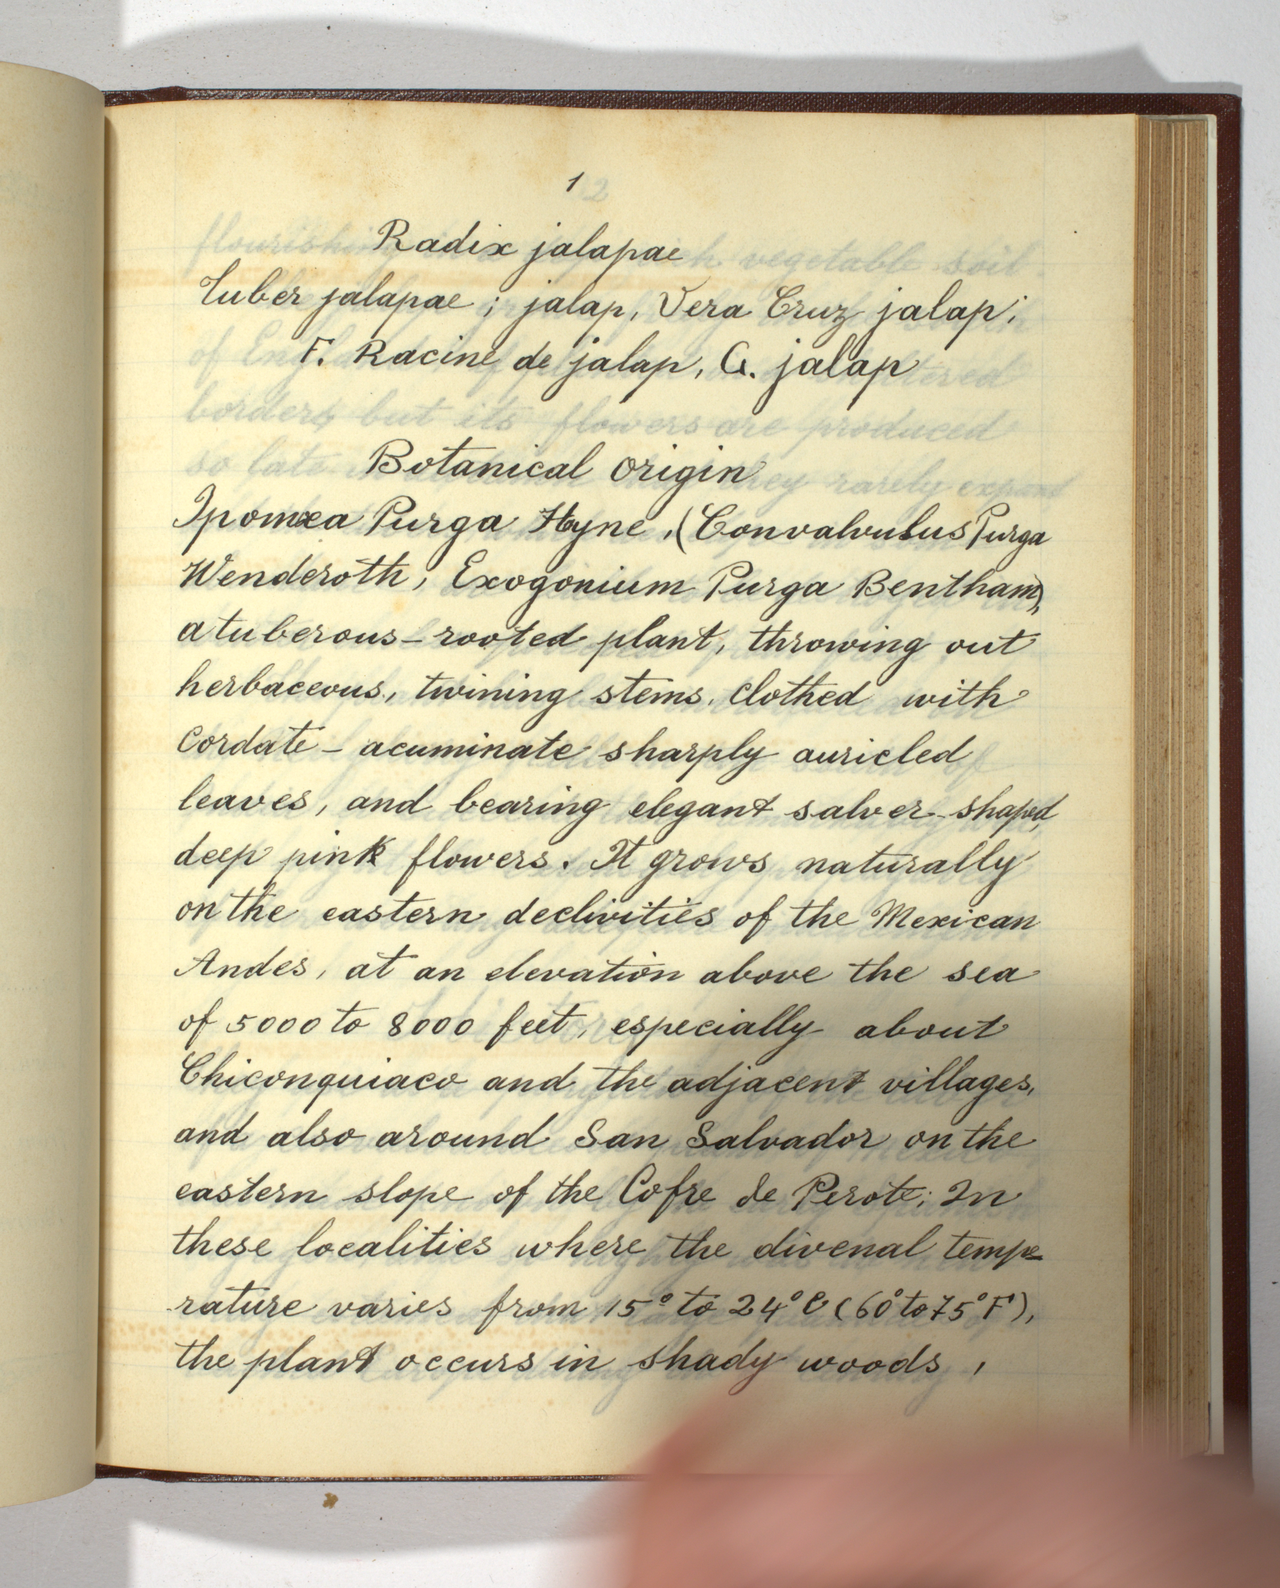 1
Radix jalapae
Tuber jalapae; jalap, Vera Cruz jalap;
F. Racine de jalap, G. jalap
Botanical origin
Ipomœa Purga Hyne, (Convalvulus Purga
Wenderoth; Exogonium Purga Bentham),
a tuberous-rooted plant, throwing out
herbaceous, twining stems, clothed with
cordate-acuminate sharply auricled
leaves, and bearing elegant salver-shaped,
deep pink flowers. It grows naturally
on the eastern declivities of the Mexican
Andes, at an elevation above the sea
of 5000 to 8000 feet, especially about
Chiconquiaco and the adjacent villages,
and also around San Salvador on the
eastern slope of the Cofre de Perote; In
these localities where the divenal tempe-
rature varies from 15° to 24° C (60° to 75° F),
the plant occurs in shady woods,